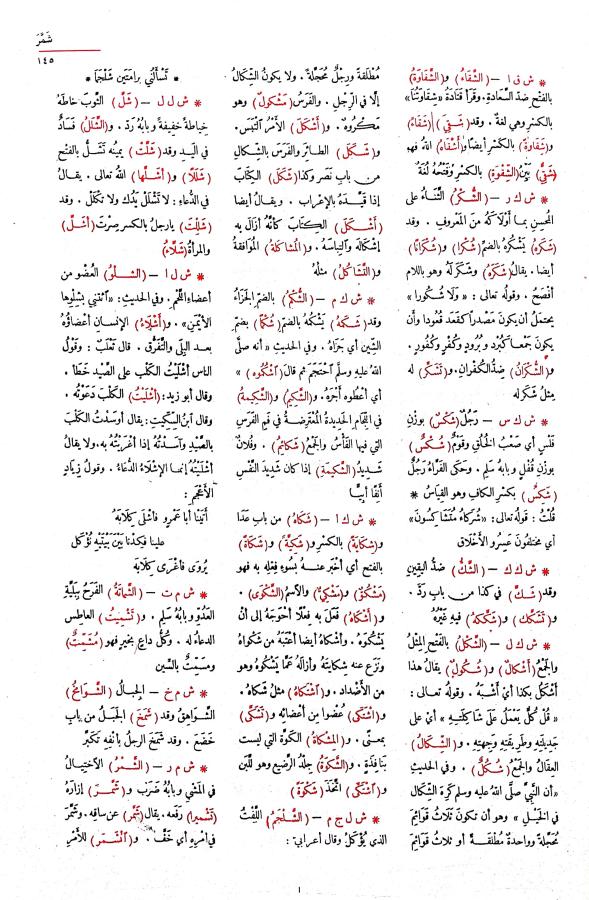 شَمَّرَ
١٤٥
* ش ق ا – (الشَّقَاءُ) و (الشَّقَاوَةُ)
بالفتح ضدّ السَّعادة. وقرأ قَتَادَةُ «شِقَاوَتُنَا»
بالكسر وهي لغةٌ . وقد (شَقِيَ) (شَقَاءً)
و(شَقَاوةً) بالكسر أيضا و (أَشْقَاهُ) اللهُ فهو
(شَقِيٌّ) بَيِّنُ (الشِّقْوةِ) بالكسر وفتحُهُ لغةٌ
* ش ك ر – (الشُّكْرُ) الثَّناءُ على
المُحسِنِ بما أَوْلَاكَهُ من المَعروفِ . وقد
(شَكَرَهُ) يَشْكُرُهُ بالضمّ (شُكْرًا) و (شُكْرَانًا)
أيضا . يقالُ (شَكَرَهُ) وشَكَرَ لَهُ وهو باللام
أَفْصَحُ . وقولُه تعالى : «ولا شُكُورا»
يحتملُ أن يكونَ مَصْدرا كقَعَد قُعُودا وأن
يكونَ جَمْعا كبُرْدٍ وبُرُودٍ وكُفْرٍ وكُفُورٍ .
و (الشُّكْرَانُ) ضِدُّ الكُفْرانِ . و(تَشَكَّر) له
مِثلُ شَكَرَ له
* ش ك س – رَجُلٌ (شَكْسٌ) بوزن
فَلْسٍ أي صَعْبُ الخُلُقِ وقَوْمٌ (شُكْسٌ)
بوزن قُفْلٍ وبابُه سَلِم . وحَكَى الفَرّاءُ رَجُلٌ
(شَكِسٌ) بكسر الكاف وهو القِياسُ *
قُلْتُ : قولُه تعالى: «شُرَكاءُ مُتَشَاكِسُونَ»
أي مختلفون عَسِرُو الأَخْلاق
* ش ك ك – (الشَّكُّ) ضدُّ اليقينِ
وقد (شَكَّ) في كذا من باب رَدَّ .
و (تَشَكَّك) و (شَكَّكَهُ) فيه غَيْرُهُ
* ش ك ل – (الشَّكْلُ) بالفتح المِثْلُ
والجَمْعُ (أَشْكَالٌ) و (شُكُولٌ) يقالُ هذا
أَشْكَلُ بكذا أي أَشْبَهُ . وقولُه تعالى :
«قُلْ كُلٌّ يَعْمَلُ عَلَى شَاكِلَتِهِ» أيْ على
جَدِيلَتِهِ وطَرِيقَتِهِ وجِهَتِهِ . و (الشِّكَالُ)
العِقَالُ والجَمْعُ (شُكُلٌ) . وفي الحديثِ
«أن النبيَّ صلَّى اللهُ عليه وسلم كَرِهَ الشِّكَالَ
في الخَيْلِ» وهو أن تكونَ ثَلاثُ قَوائِمَ
مُحَجَّلَةً وواحدةٌ مُطْلَقَةً أو ثلاثُ قَوائِمَ
مُطْلَقَةً ورِجْلٌ مُحَجَّلَةً . ولا يكونُ الشِّكَالُ
إلّا في الرِّجلِ . والفَرَسُ (مَشْكُولٌ) وهو
مَكْروهٌ . و (أَشْكَلَ) الأَمْرُ الْتَبَسَ .
و (شَكَلَ) الطائرَ والفَرَسَ بالشِّكالِ
من باب نَصَر وكذا (شَكَلَ) الكِتابَ
إذا قَيَّدَهُ بالإِعْرابِ . ويقالُ أيضا
(أَشْكَلَ) الكِتابَ كأَنَّهُ أزالَ به
إشْكَالَهُ والتِباسَهُ . و(المُشَاكَلةُ) المُوافَقةُ
و (التَّشَاكُلُ) مثلُهُ
* ش ك م – (الشُّكْمُ) بالضمّ الجَزَاءُ
وقد (شَكَمَهُ) يَشْكُمُهُ بالضمّ (شُكْمًا) بضمّ
الشين أي جَزَاهُ . وفي الحديث «أنه صلَّى
اللهُ عليه وسلَّم ٱحْتَجَمَ ثم قال (ٱشْكُمُوهُ)»
أي أَعْطُوهُ أَجْرَهُ . و(الشَّكِيمُ) و(الشَّكِيمَةُ)
في اللِّجام الحديدةُ المُعْتَرِضَةُ في فَمِ الفَرَسِ
التي فيها الفَأْسُ والجَمْعُ (شَكَائِمُ) . وفُلانٌ
شَديدُ (الشَّكِيمَةِ) إذا كان شَديدَ النَّفْسِ
أَنِفًا أَبِيًّا
* ش ك ا – (شَكَاهُ) من باب عَدَا
و(شِكَايَةً) بالكسر و(شَكِيَّةً) و (شَكَاةً)
بالفتح أي أَخْبَر عنهُ بسُوءِ فِعْلِهِ به فهو
(مَشْكُوٌّ) و(مَشْكِيٌّ) والاسمُ (الشَّكْوَى) .
و (أَشْكَاهُ) فَعَلَ به فِعْلًا أَحْوَجَهُ إلى أنْ
يَشْكُوَهُ . وأَشْكاهُ أيضا أَعْتَبَهُ من شَكْواهُ
ونَزَعَ عنه شِكَايَتَهُ وأزالَهُ عَمَّا يَشْكُوهُ وهو
من الأضْداد . و (ٱشْتَكَاهُ) مثلُ شَكاهُ .
و(ٱشْتَكَى) عُضْوا من أعْضائه و(تَشَكَّى)
بمعنًى . و(المِشْكَاةُ) الكُوَّةُ التي ليست
بنافِذَةٍ . و(الشَّكْوَةُ) جِلْدُ الرَّضِيعِ وهو لِلَّبَنِ
و(ٱشْتَكَى) اتَّخَذَ (شَكْوَةً)
* ش ل ج م – (الشَّلْجَمُ) اللِّفْتُ
الذي يُؤْكَلُ وقال أعرابيّ :
* تَسْأَلُنِي بِرَامَتَيْنِ شَلْجَمَا *
* ش ل ل – (شَلَّ) الثوبَ خاطَهُ
خِياطَةً خفيفةً وبابُه رَدَّ . و(الشَّلَلُ) فَسَادٌ
في اليَدِ وقد (شَلَّتْ) يَمينُه تَشَلُّ بالفتح
(شَلَلًا) و (أَشَلَّهَا) اللهُ تعالى . يقالُ
في الدُّعاء : لا تَشْلَلْ يَدُكَ ولا تَكْلَلْ . وقد
(شَلِلْتَ) يا رجلُ بالكسر صِرْتَ (أَشَلَّ)
والمرأةُ (شَلّاءُ)
* ش ل ا – (الشِّلْوُ) العُضْوُ من
أعضاء اللَّحْم . وفي الحديث: «ٱئْتِنِي بِشِلْوِها
الأَيْمَنِ» . و (أَشْلاءُ) الإنسانِ أعضاؤُهُ
بعد البِلَى والتَّفَرُّق . قال ثَعْلَبٌ : وقَوْلُ
الناسِ أَشْلَيْتُ الكَلْبَ على الصَّيدِ خَطَأٌ .
وقال أبو زيد: (أَشْلَيْتُ) الكَلْبَ دَعَوْتُهُ .
وقال ٱبنُ السِّكِّيتِ: يقالُ أَوْسَدْتُ الكَلْبَ
بالصَّيْدِ وآسَدْتُهُ إذا أَغْرَيْتَهُ به ولا يقالُ
أَشْلَيْتُهُ إنما الإِشْلاءُ الدُّعَاءُ . وقولُ زِيادٍ
الأَعْجَمِ :
أَتَيْنَا أبا عَمْرٍو فأَشْلَى كِلَابَهُ
علينا فكِدْنا بَيْنَ بَيْتَيْهِ نُؤْكَلُ
يُروَى فأَغْرَى كِلابَهُ
* ش م ت – (الشَّمَاتَةُ) الفَرَحُ بِبَلِيَّةِ
العَدُوِّ وبابُه سَلِم . و (تَشْمِيتُ) العاطِسِ
الدعاءُ له . وكُلُّ داعٍ بخيرٍ فهو (مُشَمِّتٌ)
ومُسَمِّتٌ بالسِّين
* ش م خ – الجِبالُ (الشَّوَامِخُ)
الشَّواهِقُ وقد (شَمَخَ) الجَبَلُ من باب
خَضَعَ . وقد شَمَخَ الرجلُ بأَنْفِهِ تَكَبَّر
* ش م ر – (الشَّمْرُ) الاختيالُ
في المَشْيِ وبابُه ضَرَبَ و (شَمَّرَ) إزارَهُ
(تَشْمِيرا) رفَعَه . يقال (شَمَّر) عن ساقِه . وشَمَّرَ
في أمْرِهِ أي خَفَّ . و (ٱنْشَمَرَ) للأَمْرِ
١